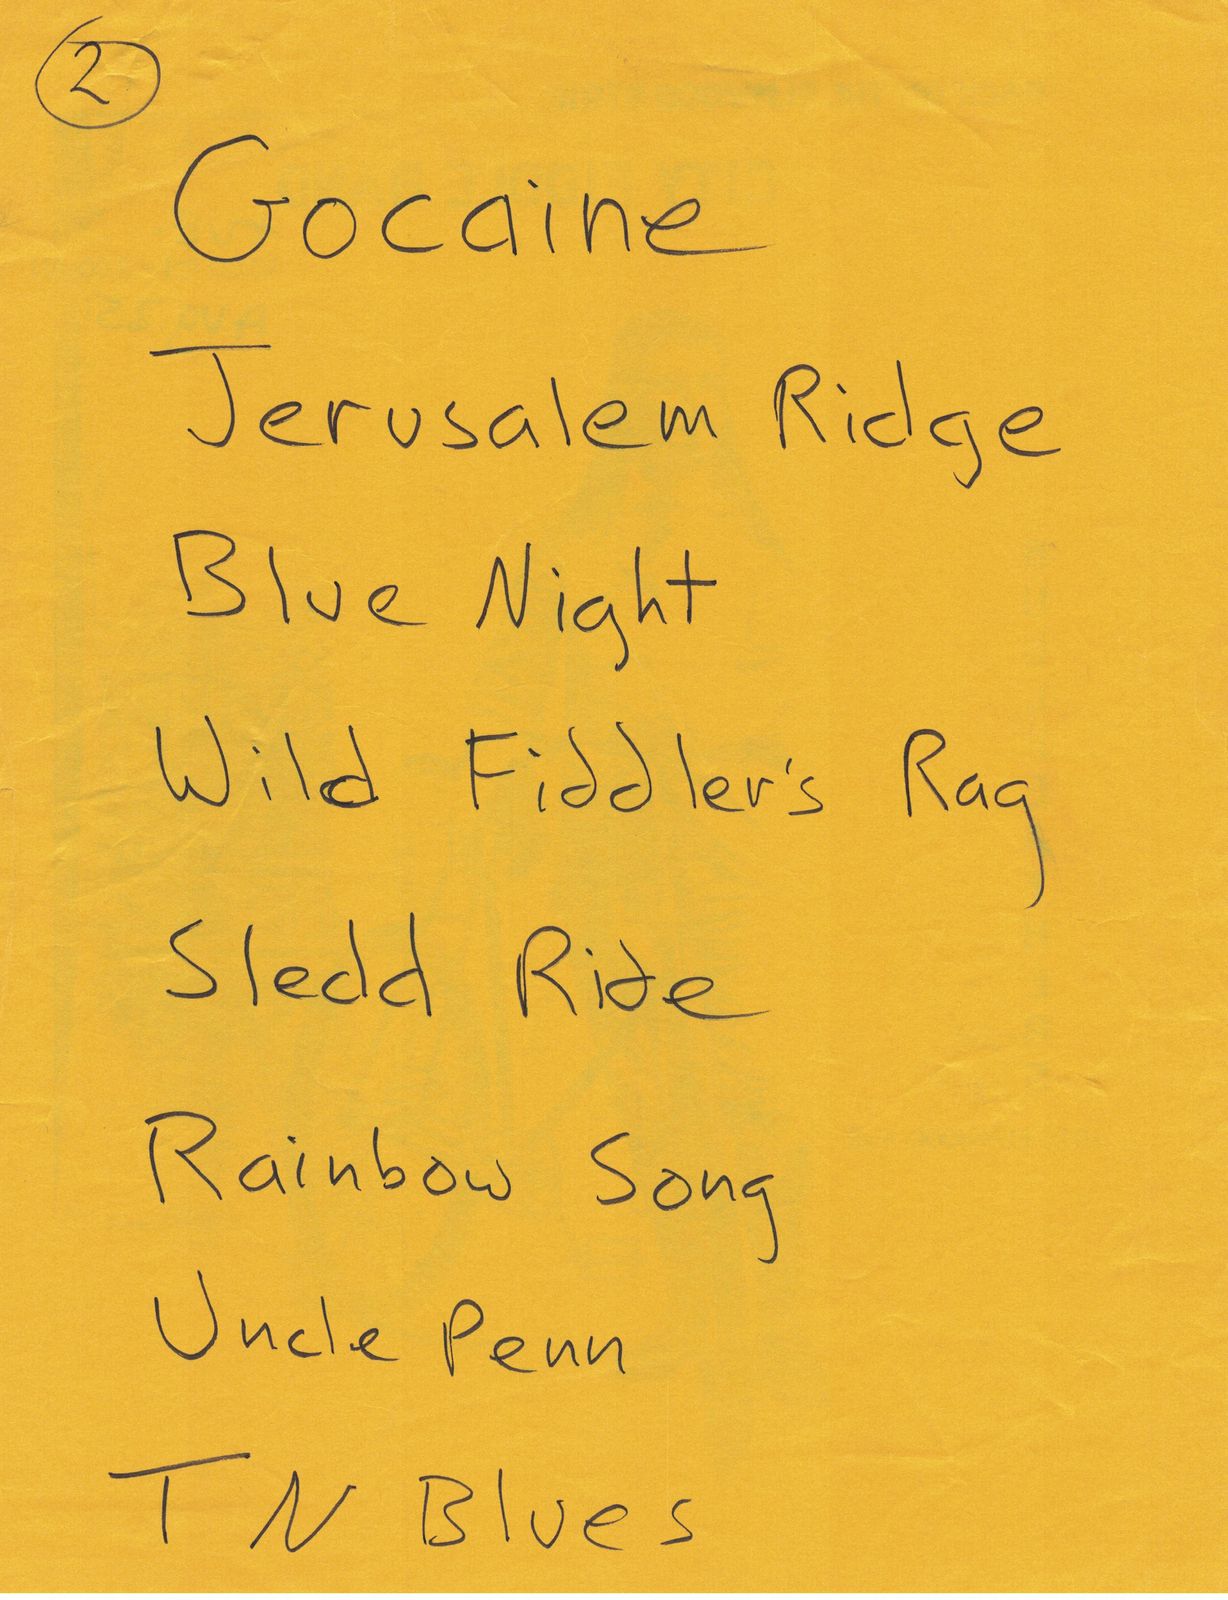 2
Gocaine
Jerusalem Ridge
Blue Night
Wild Fiddler's Rag
Sledd Ride
Rainbow Song
Uncle Penn
TN Blues